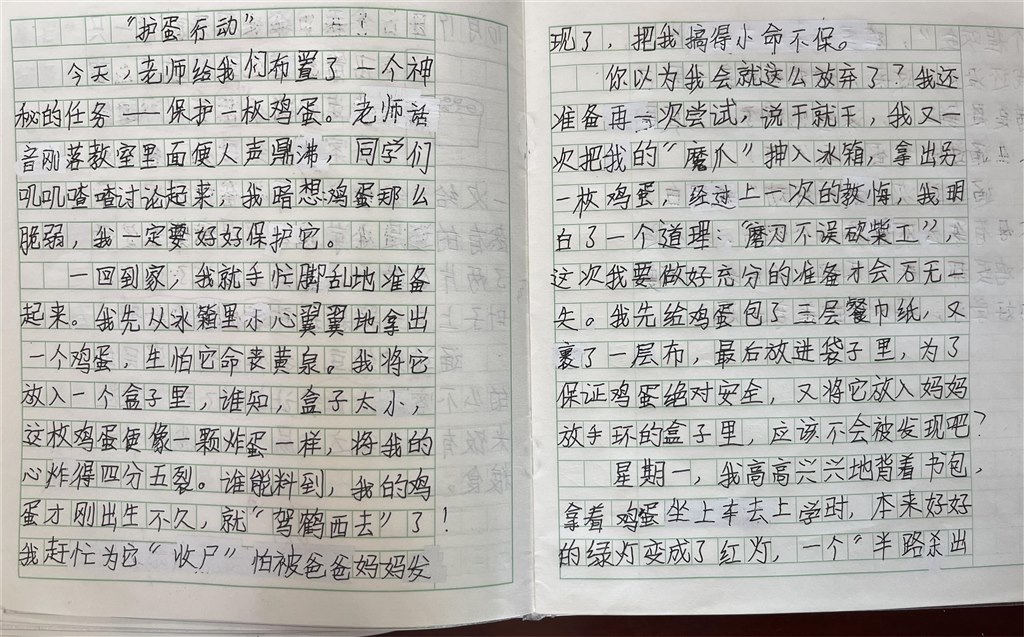 “护蛋行动”
今天，老师给我们布置了一个神
秘的任务——保护一枚鸡蛋。老师话
音刚落教室里面便人声鼎沸，同学们
叽叽喳喳讨论起来，我暗想鸡蛋那么
脆弱，我一定要好好保护它。
一回到家，我就手忙脚乱地准备
起来。我先从冰箱里小心翼翼地拿出
一个鸡蛋，生怕它命丧黄泉。我将它
放入一个盒子里，谁知，盒子太小，
这枚鸡蛋便像一颗炸蛋一样，将我的
心炸得四分五裂。谁能料到，我的鸡
蛋才刚出生不久，就“驾鹤西去”了！
我赶忙为它“收尸”怕被爸爸妈妈发
现了，把我搞得小命不保。
你以为我会就这么放弃了？我还
准备再一次尝试，说干就干，我又一
次把我的“魔爪”抻入冰箱，拿出另
一枚鸡蛋，经过上一次的教悔，我明
白了一个道理：“磨刀不误砍柴工”，
这次我要做好充分的准备才会万无一
失。我先给鸡蛋包了三层餐巾纸，又
裹了一层布，最后放进袋子里，为了
保证鸡蛋绝对安全，又将它放入妈妈
放手环的盒子里，应该不会被发现吧？
星期一，我高高兴兴地背着书包，
拿着鸡蛋坐上车去上学时，本来好好
的绿灯变成了红灯，一个“半路杀出